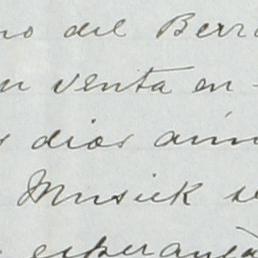 no del Berr
n venta en-
s dias aún
Musick se
esperanza